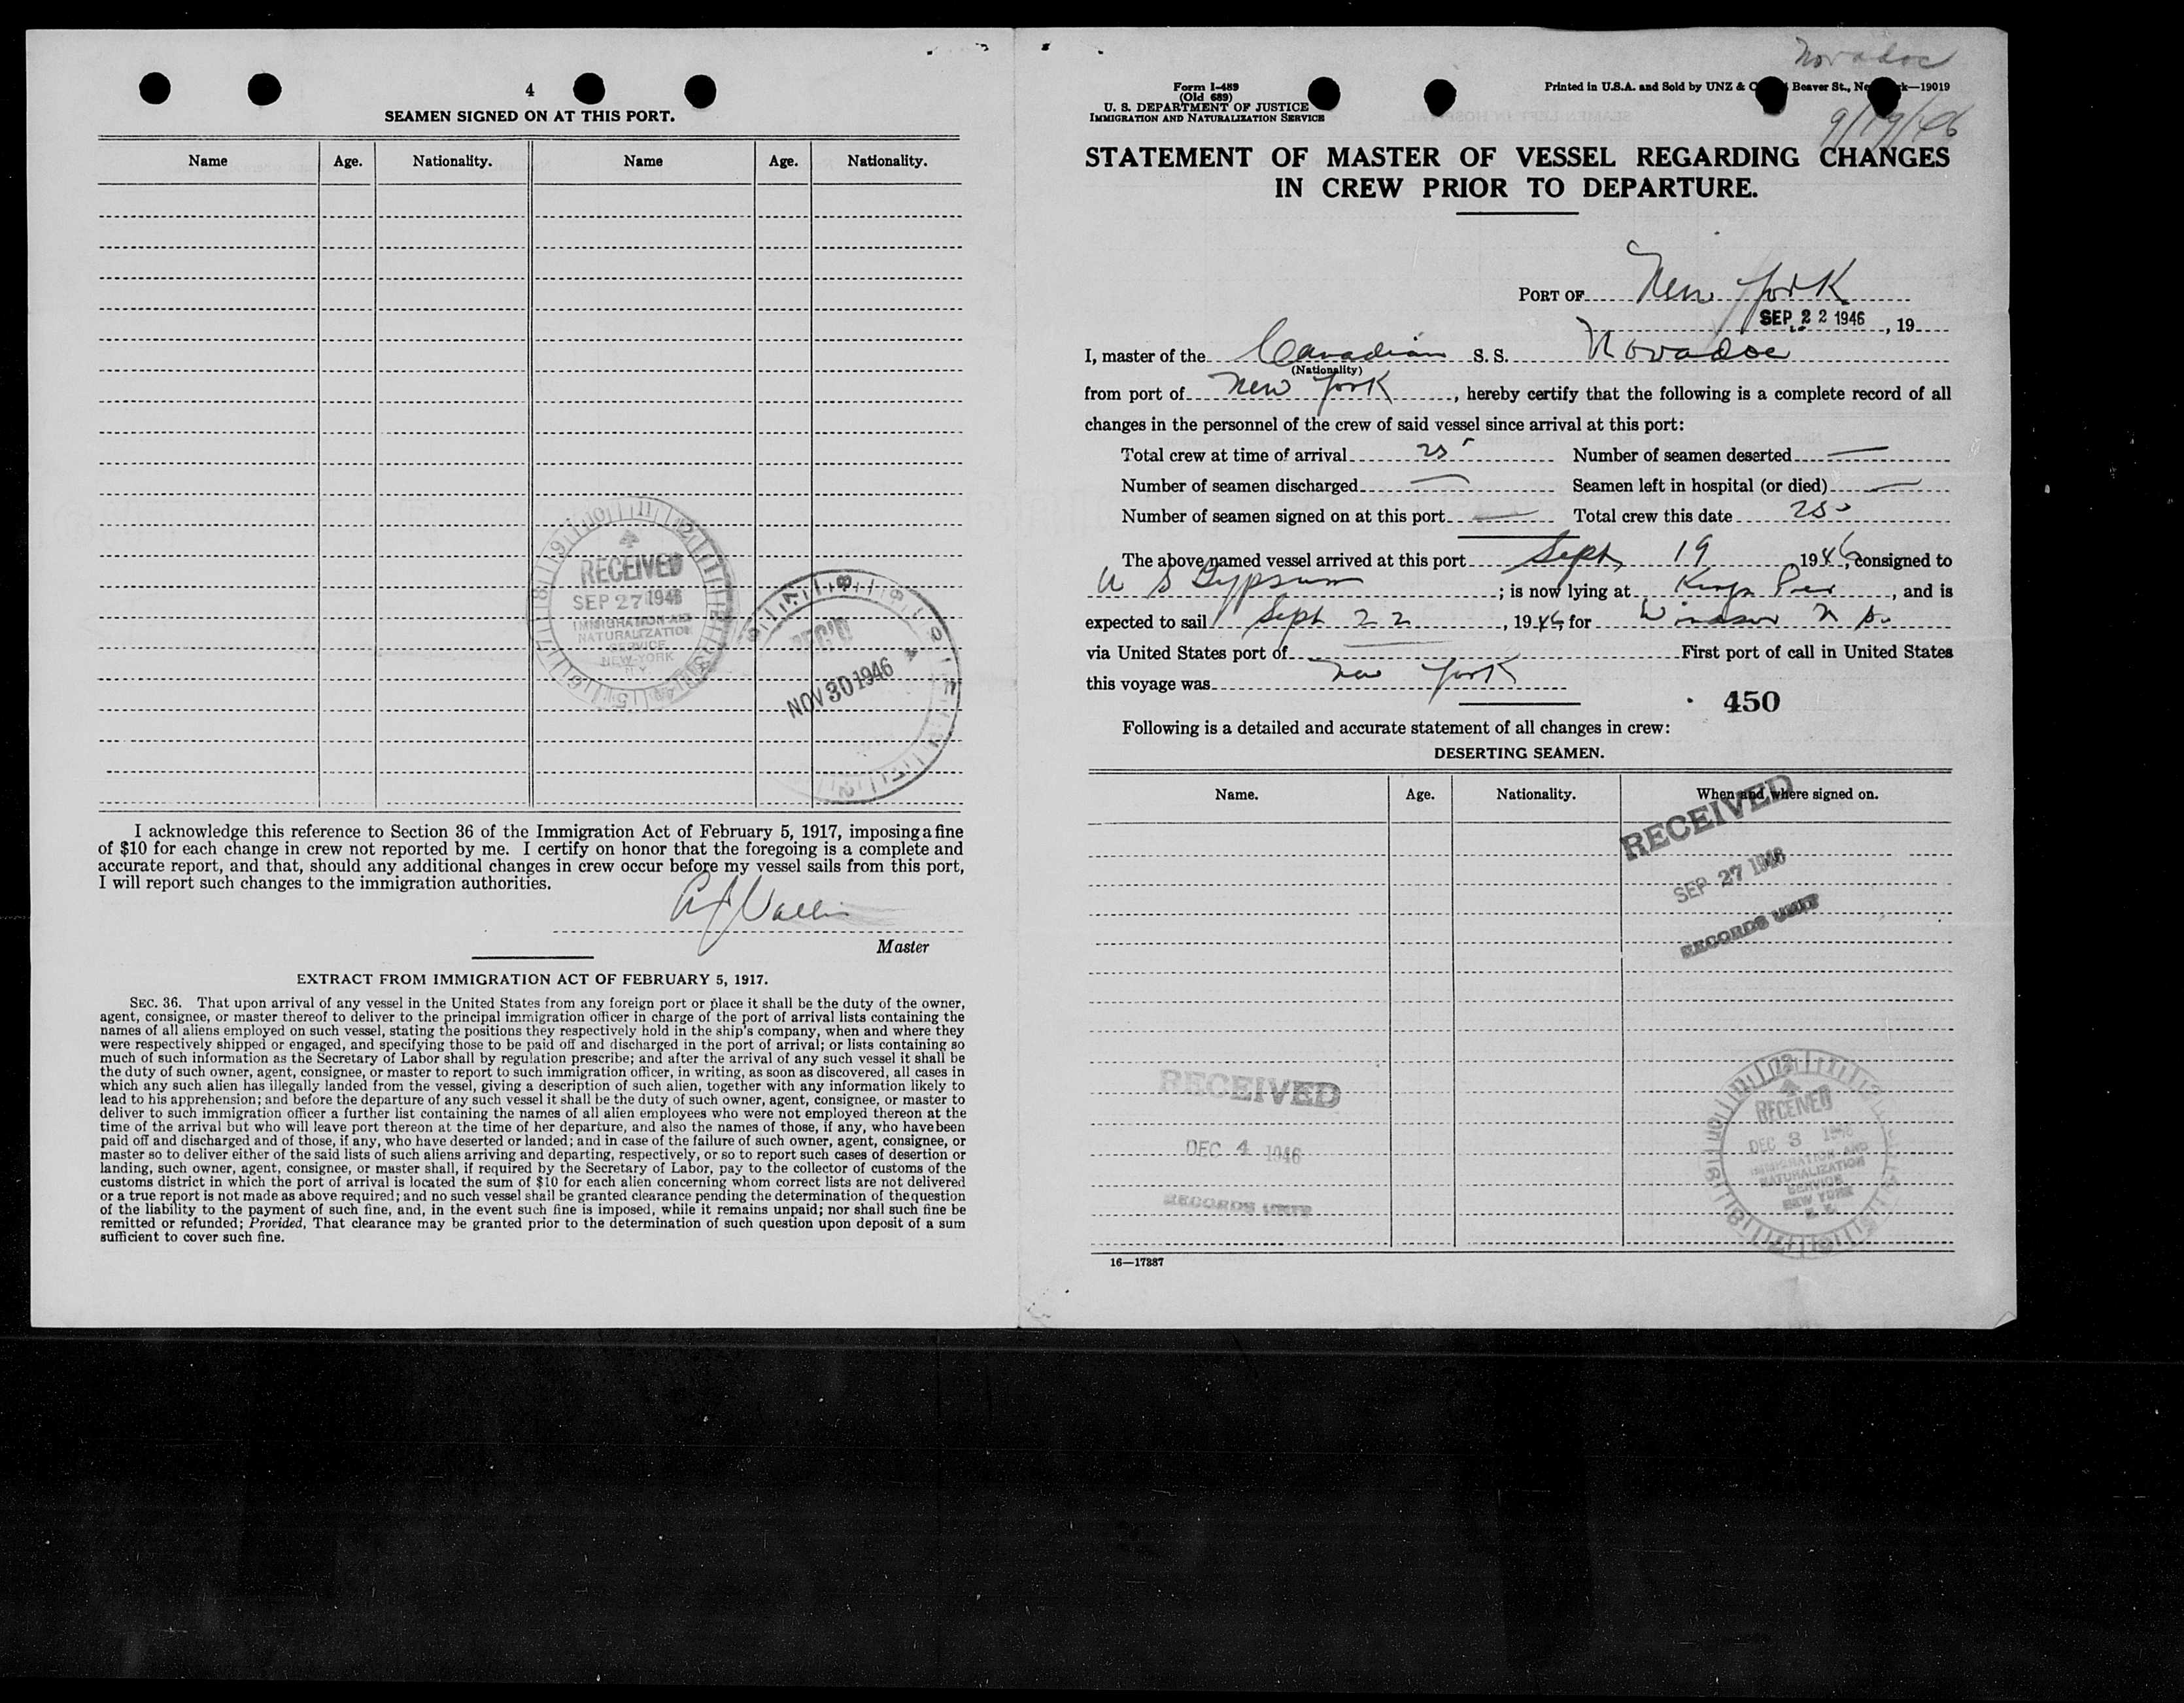 4
SEAMEN SIGNED ON AT THIS PORT.
Name Age. Nationality. Name Age. Nationality.
RECEIVED
SEP 27 1946
IMMIGRATION AND
NATURALIZATION
SERVICE
NEW YORK
N.Y.
REC'D
NOV 30 1946
I acknowledge this reference to Section 36 of the Immigration Act of February 5, 1917, imposing a fine
of $10 for each change in crew not reported by me. I certify on honor that the foregoing is a complete and
accurate report, and that, should any additional changes in crew occur before my vessel sails from this port,
I will report such changes to the immigration authorities.
Master
EXTRACT FROM IMMIGRATION ACT OF FEBRUARY 5, 1917.
SEC. 36. That upon arrival of any vessel in the United States from any foreign port or place it shall be the duty of the owner,
agent, consignee, or master thereof to deliver to the principal immigration officer in charge of the port of arrival lists containing the
names of all aliens employed on such vessel, stating the positions they respectively hold in the ship's company, when and where they
were respectively shipped or engaged, and specifying those to be paid off and discharged in the port of arrival; or lists containing so
much of such information as the Secretary of Labor shall by regulation prescribe; and after the arrival of any such vessel it shall be
the duty of such owner, agent, consignee, or master to report to such immigration officer, in writing, as soon as discovered, all cases in
which any such alien has illegally landed from the vessel, giving a description of such alien, together with any information likely to
lead to his apprehension; and before the departure of any such vessel it shall be the duty of such owner, agent, consignee, or master to
deliver to such immigration officer a further list containing the names of all alien employees who were not employed thereon at the
time of the arrival but who will leave port thereon at the time of her departure, and also the names of those, if any, who have been
paid off and discharged and of those, if any, who have deserted or landed; and in case of the failure of such owner, agent, consignee, or
master so to deliver either of the said lists of such aliens arriving and departing, respectively, or so to report such cases of desertion or
landing, such owner, agent, consignee, or master shall, if required by the Secretary of Labor, pay to the collector of customs of the
customs district in which the port of arrival is located the sum of $10 for each alien concerning whom correct lists are not delivered
or a true report is not made as above required; and no such vessel shall be granted clearance pending the determination of the question
of the liability to the payment of such fine, and, in the event such fine is imposed, while it remains unpaid; nor shall such fine be
remitted or refunded; Provided, That clearance may be granted prior to the determination of such question upon deposit of a sum
sufficient to cover such fine.
Novadoc
9/19/46
Form I-489
(Old 689)
U. S. DEPARTMENT OF JUSTICE
IMMIGRATION AND NATURALIZATION SERVICE
Printed in U.S.A. and Sold by UNZ & Beaver St., —19019
STATEMENT OF MASTER OF VESSEL REGARDING CHANGES
IN CREW PRIOR TO DEPARTURE.
PORT OF New York
SEP 22 1946, 19
I, master of the Canadian S. S. Novadoc
(Nationality)
from port of New York, hereby certify that the following is a complete record of all
changes in the personnel of the crew of said vessel since arrival at this port:
Total crew at time of arrival 25 Number of seamen deserted —
Number of seamen discharged — Seamen left in hospital (or died) —
Number of seamen signed on at this port — Total crew this date 25
The above named vessel arrived at this port Sept 19 1946, consigned to
U S Gypsum; is now lying at Kings Pier, and is
expected to sail Sept 22, 1946, for Windsor N S.
via United States port of — First port of call in United States
this voyage was New York
450
Following is a detailed and accurate statement of all changes in crew:
DESERTING SEAMEN.
Name. Age. Nationality. When and where signed on.
RECEIVED
SEP 27 1946
RECORDS UNIT
RECEIVED
DEC 4 1946
RECORDS UNIT
RECEIVED
DEC 3 1946
IMMIGRATION AND
NATURALIZATION
SERVICE
NEW YORK
N. Y.
16—17387